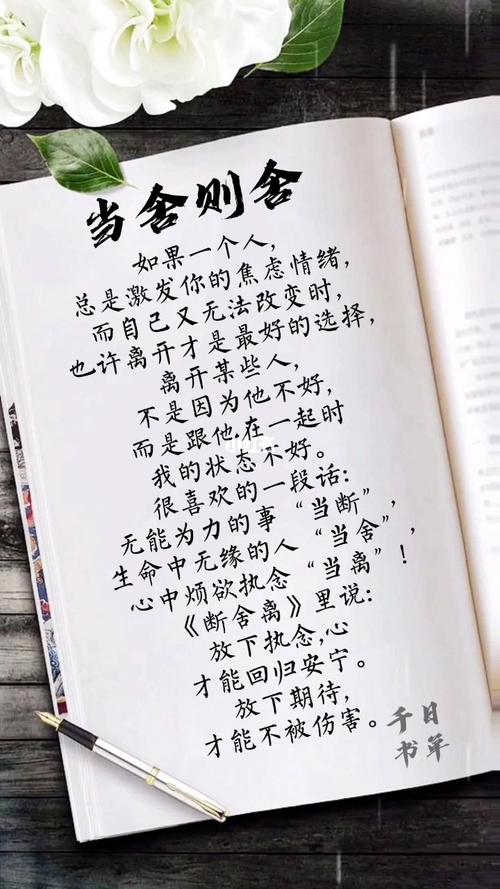 当舍则舍
如果一个人，
总是激发你的焦虑情绪，
而自己又无法改变时，
也许离开才是最好的选择，
离开某些人，
不是因为他不好，
而是跟他在一起时
我的状态不好。
很喜欢的一段话：
无能为力的事“当断”，
生命中无缘的人“当舍”，
心中烦欲执念“当离”！
《断舍离》里说：
放下执念，心
才能回归安宁。
放下期待，
才能不被伤害。
千日
书单